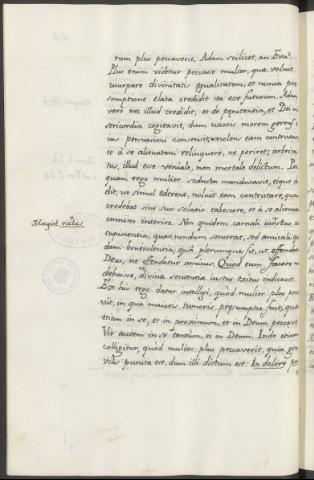 rum plus peccaverit, Adam scilicet, an Eva.
Plus enim videtur peccasse mulier, quæ voluit
usurpare divinitatis equalitatem, et nimia pre
sumptione elata credidit ita esse futurum. Adam
vero nec illud credidit, et de penitentia, et Dei mi
sericordia cogitavit, dum uxoris morem gerens
ius persuasioni consensit, nolens eam contristare
et à se alienatam relinquere, ne periret; arbitra
tus, illud esse veniale, non mortale delictum.
quam ergo mulier seducta manducavit, eique de
dit, ut simul ederent, noluit eam contristare, quam
credebat sine suo solatio tabescere, et à se alienatam
omnino interire. Non quidem carnali victus con
cupiscentia, quam nondum senserat, sed amicabili
dam benevolentia, qua plerumque fit, ut offendatur
Deus, ne offendatur amicus. Quod eum facere non
debuisse, divina sententia iustus exitus indicavit.
Ex his ergo datur intelligi, quod mulier plus pecca
vit, in qua maioris tumoris presumptio fuit, quæ
etiam in se, et in proximum, et in Deum peccavit
Vir autem in se tantum, et in Deum. Inde etiam
colligitur, quòd mulier plus peccaverit, quia gra
vius punita est, dum illi dictum est: In dolore
Magist. victus